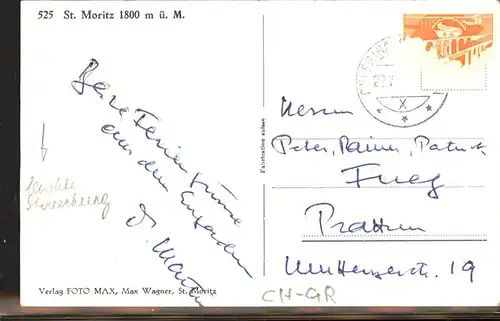 525 St. Moritz 1800 m ü. M.
Beste Feriengrüsse
aus dem Engadin
D. Martin
leichte
Verlag FOTO MAX, Max Wagner, St. Moritz
Fabrication suisse
X
Herren
Peter, Rainer, Patrick
Fueg
Pratteln
Muttenzerstr. 19
CH-GR